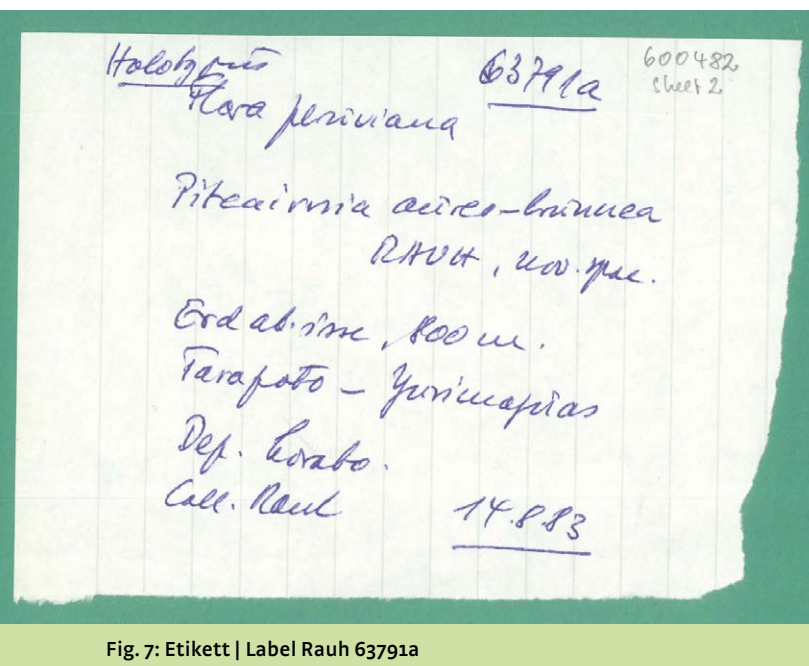 Holotypus 63791a 600482
sheet 2
Flora peruviana
Pitcairnia aureo-brunnea
RAUH, nov. spec.
Erdabrisse, 800 m.
Tarapoto – Yurimaguas
Dep. Loreto.
Coll. Rauh 14.8.83
Fig. 7: Etikett | Label Rauh 63791a